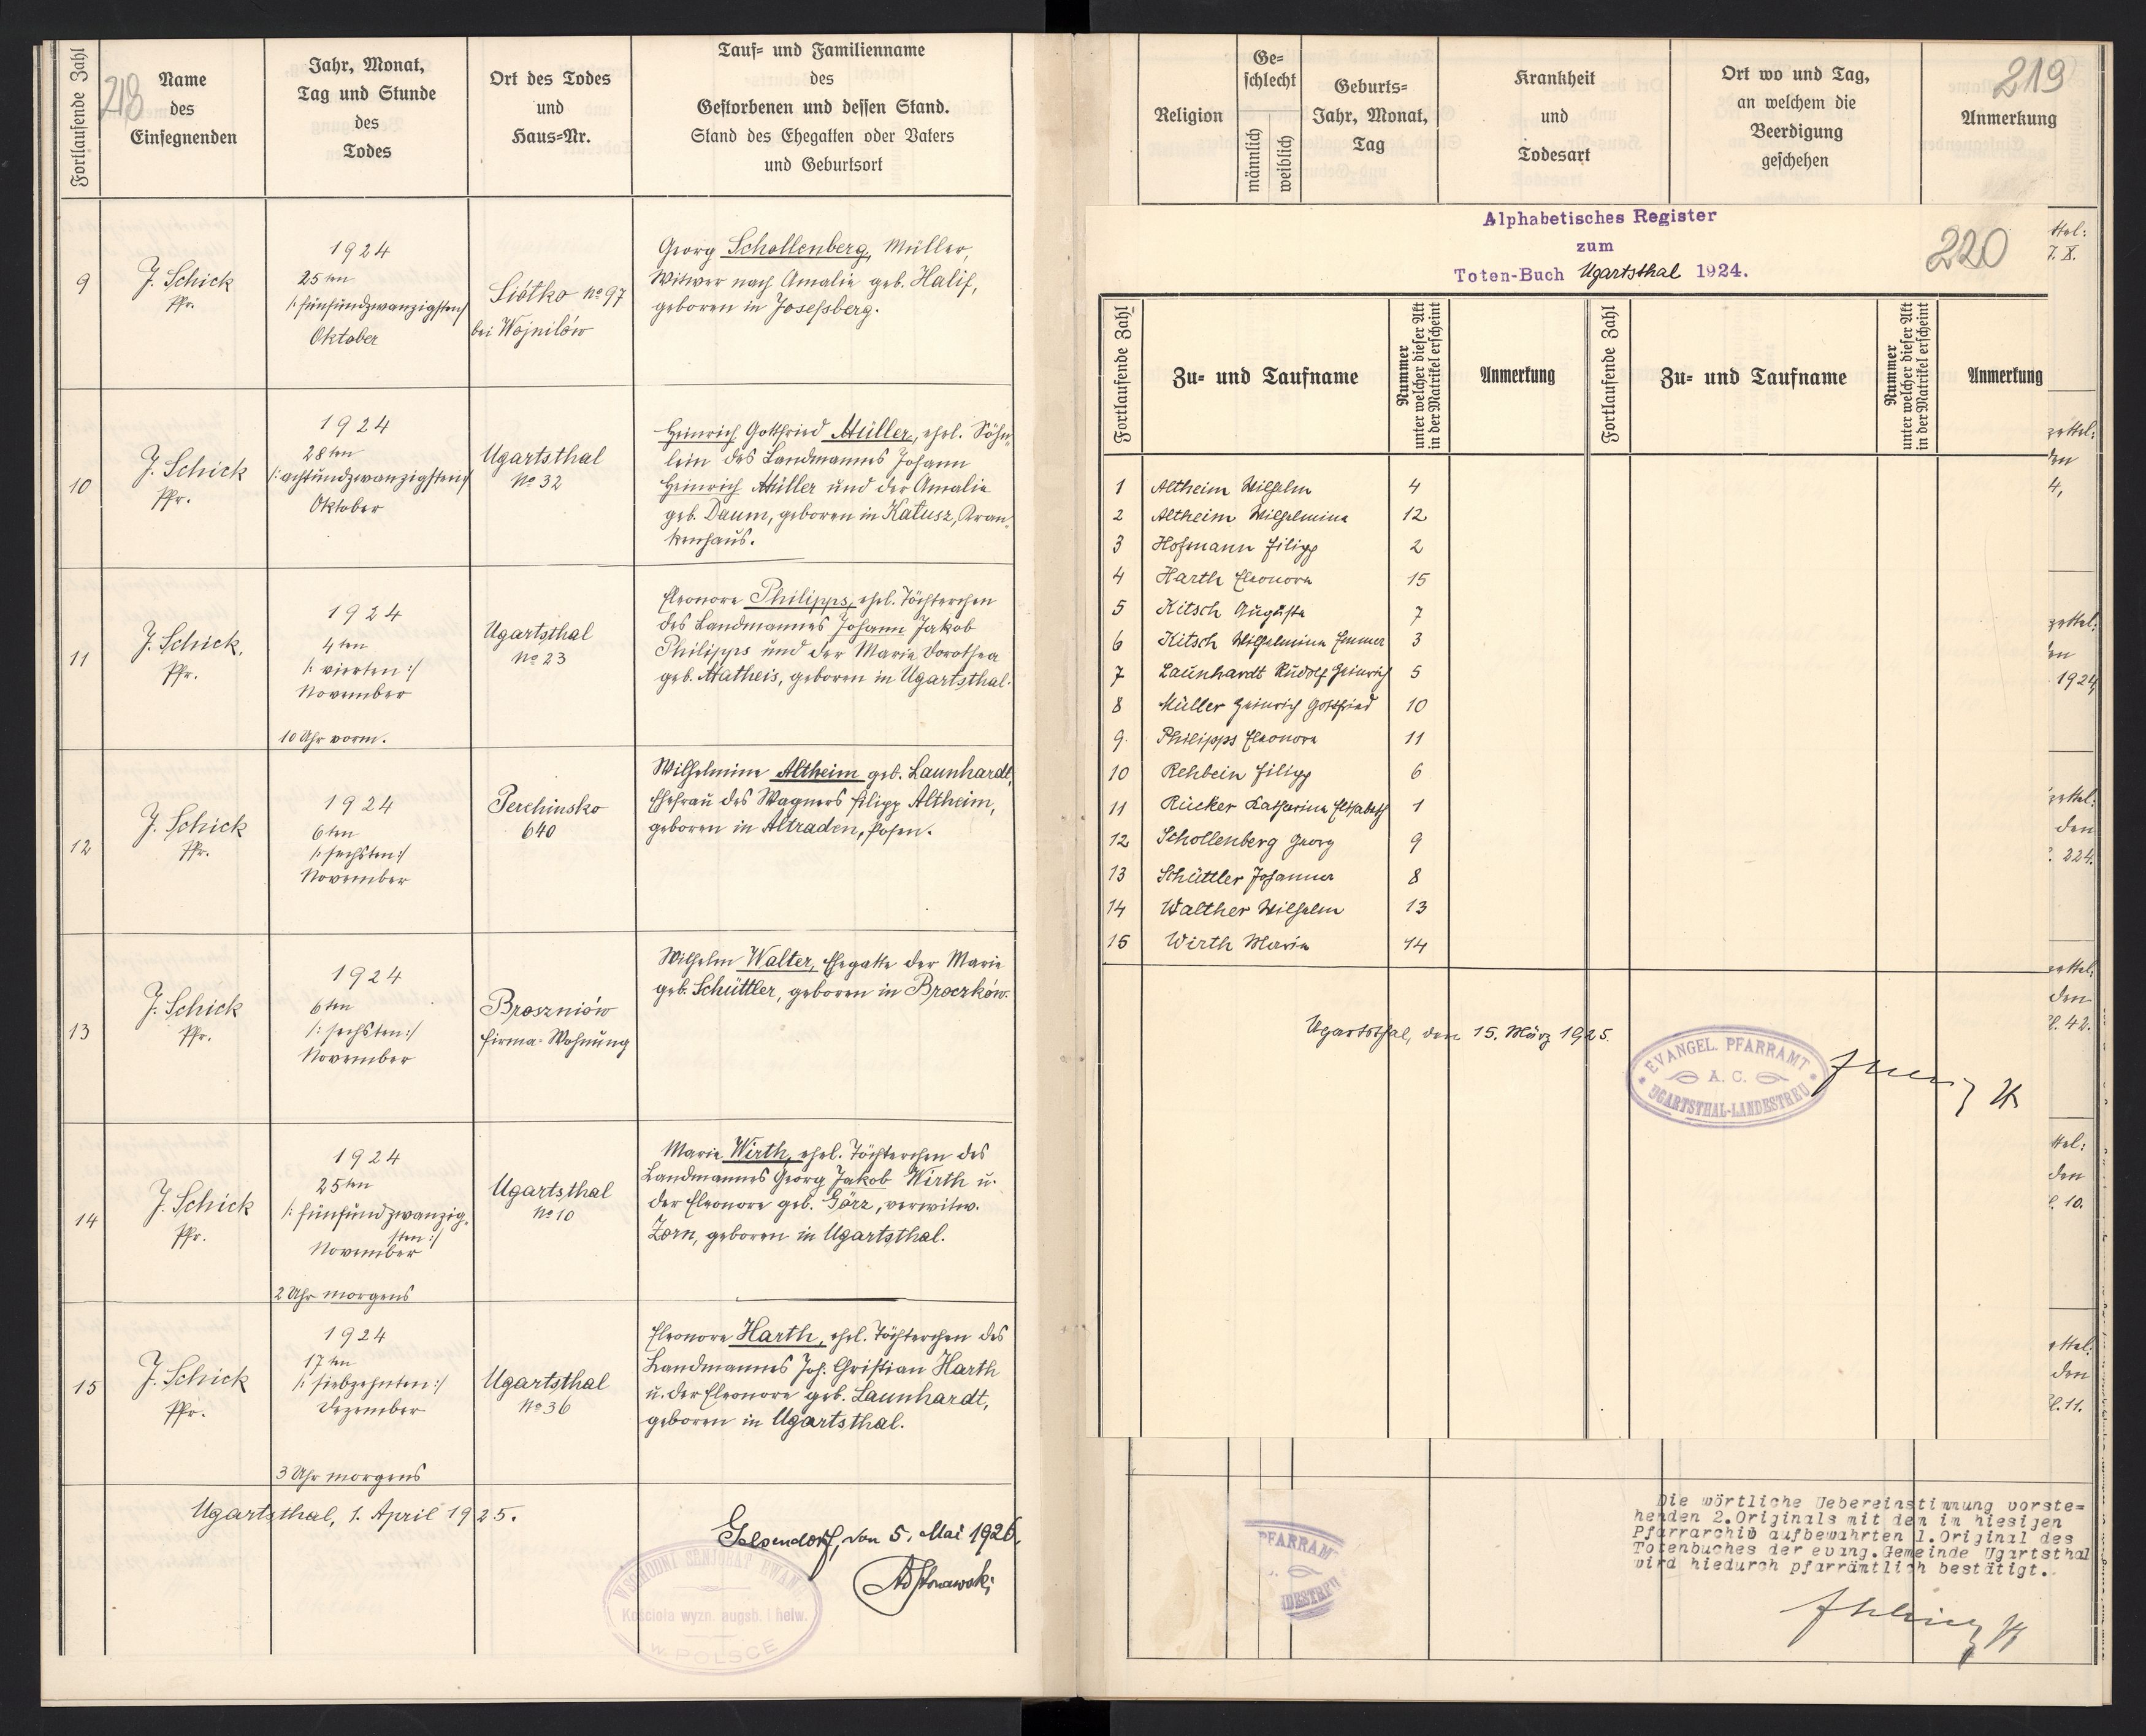 218
Fortlaufende Zahl
Name
des
Einsegnenden
Jahr, Monat,
Tag und Stunde
des
Todes
Ort des Todes
und
Haus=Nr.
Tauf= und Familienname
des
Gestorbenen und dessen Stand.
Stand des Ehegatten oder Vaters
und Geburtsort
9
J. Schick
Pfr.
1924
25ten
/: fünfundzwanzigsten/
Oktober
Siółko No 97
bei Wojnilów
Georg Schollenberg, Müller,
Witwer nach Amalie geb. Halif,
geboren in Josefsberg.
10
J. Schick
Pfr.
1924
28ten
/: achtundzwanzigsten/
Oktober
Ugartsthal
No 32
Heinrich Gottfried Müller, ehel. Söhn-
lein des Landmannes Johann
Heinrich Müller und der Amalie
geb. Daum, geboren in Kałusz, Kran-
kenhaus.
11
J. Schick,
Pfr.
1924
4ten
/: vierten :/
November
10 Uhr vorm.
Ugartsthal
No 23
Eleonore Philipps, ehel. Töchterchen
des Landmannes Johann Jakob
Philipps und der Marie Dorothea
geb. Matheis, geboren in Ugartsthal.
12
J. Schick
Pfr.
1924
6ten
/: sechsten :/
November
Perehinsko
640
Wilhelmine Altheim geb. Launhardt,
Ehefrau des Wagners Filipp Altheim,
geboren in Altraden, Posen.
13
J. Schick
Pfr.
1924
6ten
/: sechsten :/
November
Broszniów
Firma-Wohnung
Wilhelm Walter, Ehegatte der Marie
geb. Schüttler, geboren in Broczków.
14
J. Schick
Pfr.
1924
25ten
/: fünfundzwanzig-
sten :/
November
2 Uhr morgens
Ugartsthal
No 10
Marie Wirth, ehel. Töchterchen des
Landmannes Georg Jakob Wirth u.
der Eleonore geb. Görz, verwitw.
Zorn, geboren in Ugartsthal.
15
J. Schick
Pfr.
1924
17ten
/: siebzehnten :/
Dezember
3 Uhr morgens
Ugartsthal
No 36
Eleonore Harth, ehel. Töchterchen des
Landmannes Joh. Christian Harth
u. der Eleonore geb. Launhardt,
geboren in Ugartsthal.
Ugartsthal, 1. April 1925.
Gelsendorf, den 5. Mai 1926.
WSCHODNI SENJORAT EWANG.
Kościoła wyzn. augsb. i helw.
W POLSCE
219
Religion
Ge=
schlecht
männlich
weiblich
Geburts=
Jahr, Monat,
Tag
Krankheit
und
Todesart
Ort wo und Tag,
an welchem die
Beerdigung
geschehen
Anmerkung
Alphabetisches Register
zum
Toten-Buch Ugartsthal 1924.
220
Fortlaufende Zahl
Zu= und Taufname
Nummer
unter welcher dieser Akt
in der Matrikel erscheint
Anmerkung
Fortlaufende Zahl
Zu= und Taufname
Nummer
unter welcher dieser Akt
in der Matrikel erscheint
Anmerkung
1 Altheim Wilhelm 4
2 Altheim Wilhelmine 12
3 Hofmann Filipp 2
4 Harth Eleonore 15
5 Kitsch Auguste 7
6 Kitsch Wilhelmine Emma 3
7 Launhardt Rudolf Heinrich 5
8 Müller Heinrich Gottfried 10
9. Philipps Eleonore 11
10 Rehbein Filipp 6
11 Rücker Katharina Elisabeth 1
12 Schollenberg Georg 9
13 Schüttler Johanna 8
14 Walther Wilhelm 13
15 Wirth Marie 14
Ugartsthal, den 15. März 1925.
EVANGEL. PFARRAMT
A. C.
UGARTSTHAL-LANDESTREU
ttel:
7. X.
zettel:
den
4,
zettel:
en
1924
zettel:
den
224.
zettel:
den
42.
ttel:
den
10.
ettel:
den
11.
PFARRAMT
NDESTREU
Die wörtliche Uebereinstimmung vorste=
henden 2.Originals mit dem im hiesigen
Pfarrarchiv aufbewahrten 1.Original des
Totenbuches der evang.Gemeinde Ugartsthal
wird hiedurch pfarrämtlich bestätigt.